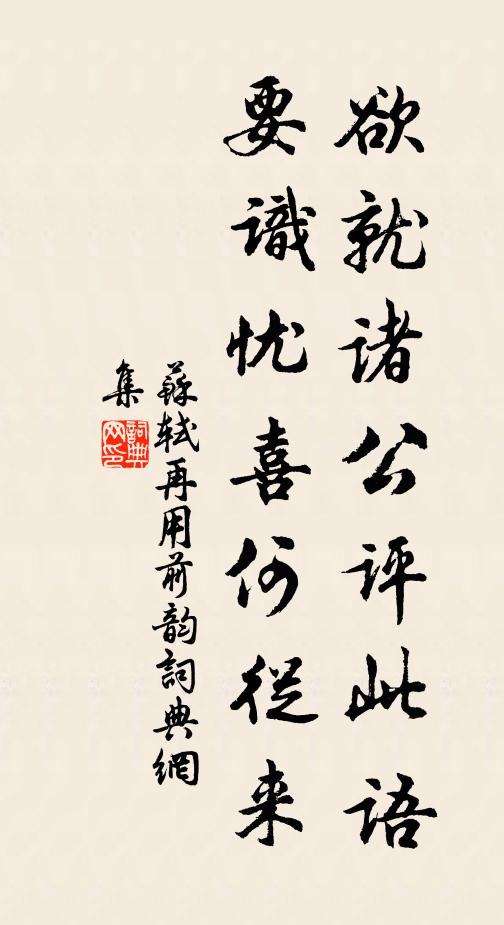 欲就诸公评此语
要識忧喜何從来
蘇軾再用前韵詞典網
集
詞典网印